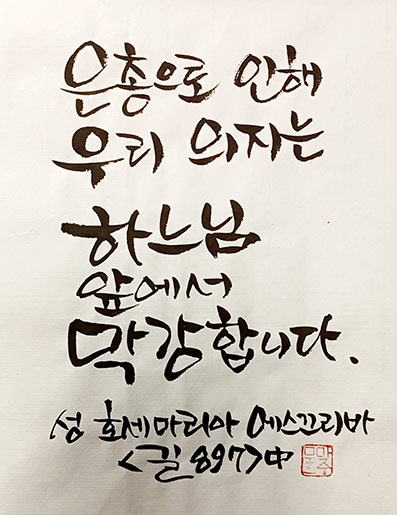 은총으로 인해
우리 의지는
하느님
앞에서
막강합니다.
성 호세마리아 에스끄리바
<길 897>中